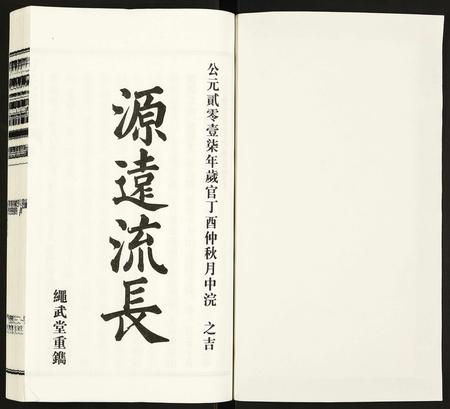 公元貳零壹柒年歲官丁酉仲秋月中浣 之吉
源遠流長
繩武堂重鐫